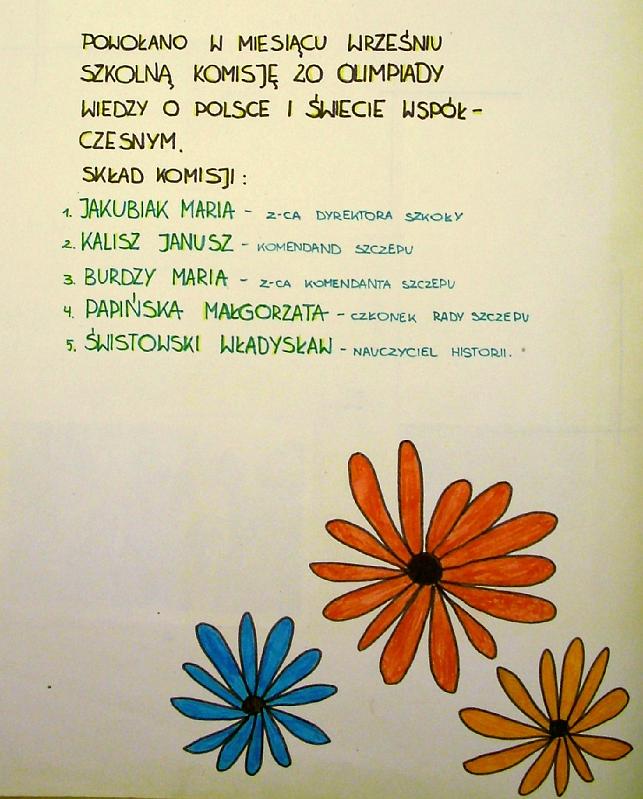 POWOŁANO W MIESIĄCU WRZEŚNIU
SZKOLNĄ KOMISJĘ 20 OLIMPIADY
WIEDZY O POLSCE I ŚWIECIE WSPÓŁ-
CZESNYM.
SKŁAD KOMISJI:
1. JAKUBIAK MARIA - Z-CA DYREKTORA SZKOŁY
2. KALISZ JANUSZ - KOMENDAND SZCZEPU
3. BURDZY MARIA - Z-CA KOMENDANTA SZCZEPU
4. PAPIŃSKA MAŁGORZATA - CZŁONEK RADY SZCZEPU
5. ŚWISTOWSKI WŁADYSŁAW - NAUCZYCIEL HISTORII.